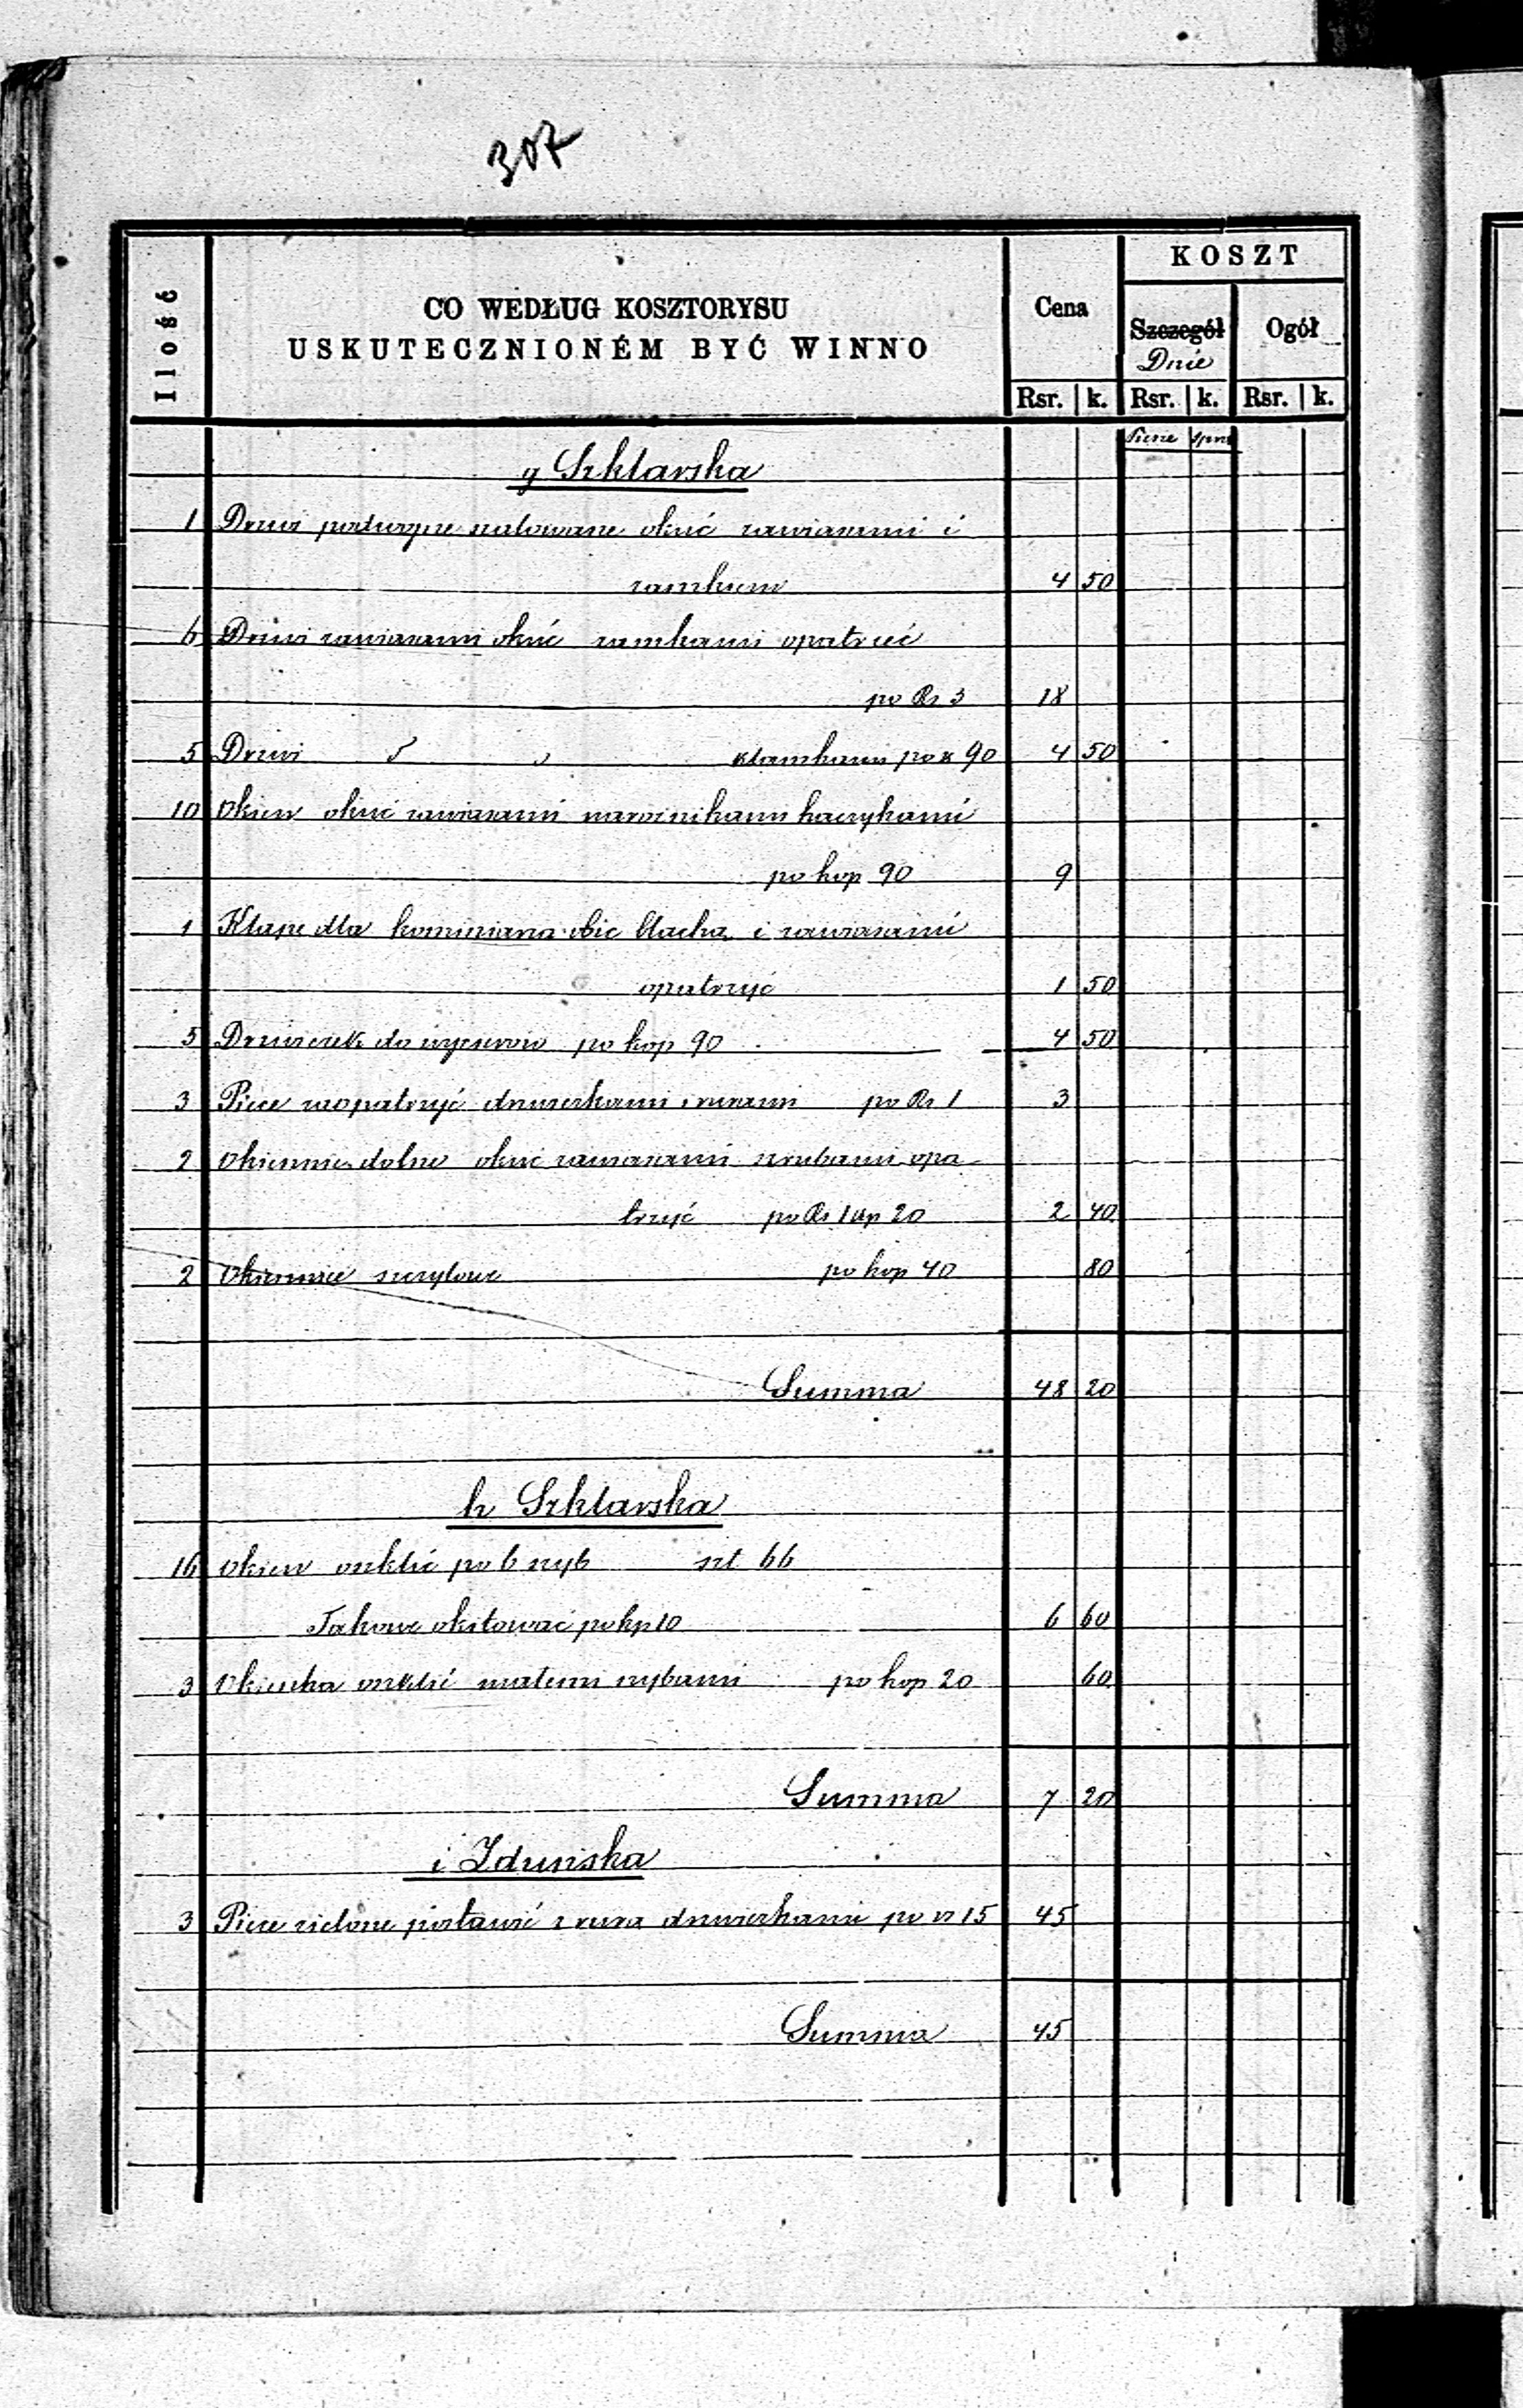 307
Ilość
CO WEDŁUG KOSZTORYSU
USKUTECZNIONÉM BYĆ WINNO
Cena
KOSZT
Szczegół
Dnie
Ogół
Rsr. k. Rsr. k. Rsr. k.
Piesze sprz
g Szklarska
1 Drzwi podwojne szalowane okuć zawiasami i
zamkiem 4 50
6 Drzwi zawiasami okuć zamkami opatrzeć
po Rs 3 18
5 Drzwi klamkami po k 90 4 50
10 Okien okuć zawiasami narożnikami haczykami
po kop 90 9
1 Klapę dla kominiarza obic blacha i zawiasami
opatrzyć 1 50
5 Drzwiczek do wycierow po kop 90 4 50
3 Piece zaopatrzyć drzwiczkami i rurami po Rs 1 3
2 Okiennic dolne okuć zawiasami szrubami opa-
trzyć po Rs 1 kp 20 2 40
2 Okiennice szczytowe po kop 40 80
Summa 48 20
h Szklarska
16 Okien oszklić po 6 szyb szt 66
Takowe okitować po kp 10 6 60
3 Okienka oszklić małemi szybami po kop 20 60
Summa 7 20
i Zduńska
3 Piece zielone postawić z rura drzwiczkami po rs 15 45
Summa 45